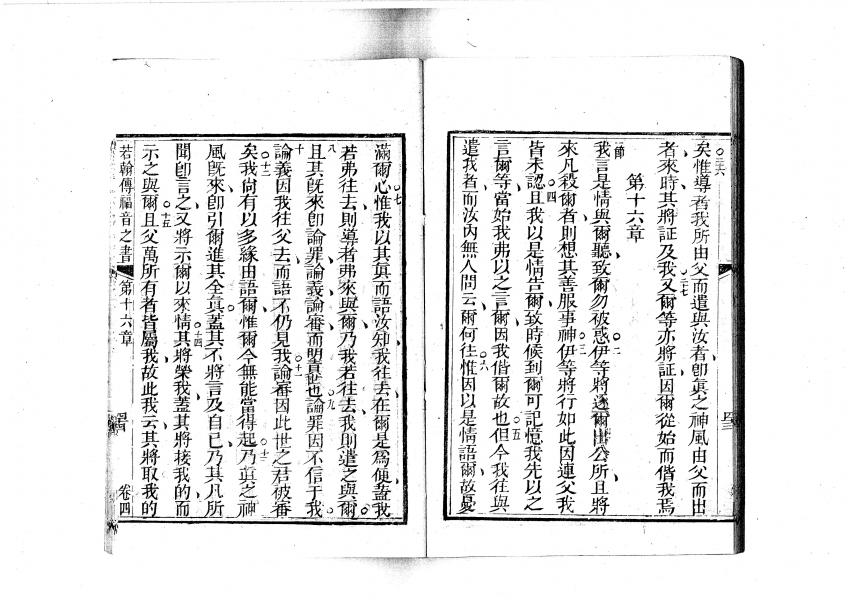 矣惟導者我所由父而遣與汝者卽眞之神風由父而出
者來時其將証及我又爾等亦將証因爾從始而偕我焉
第十六章
我言是情與爾聽致爾勿被惑伊等將逐爾出公所且將
來凡殺爾者則想其善服事神伊等將行如此因連父我
皆未認且我以是情告爾致時候到爾可記憶我先以之
言爾等當始我弗以之言爾因我偕爾故也但今我往與
遣我者而汝內無人問云爾何往惟因以是情語爾故憂
滿爾心惟我以其眞而語汝知我往去在爾是為便蓋我
若弗往去則導者弗來與爾乃我若往去我則遣之與爾
且其旣來卽論罪論義論審而盟責世論罪因不信于我
論義因我往父去而語不仍見我論審因此世之君被審
矣我尙有以多緣由語爾惟爾今無能當得起乃眞之神
風旣來卽引爾進其全眞蓋其不將言及自己乃其凡所
聞卽言之又將示爾以來情其將榮我蓋其將接我的而
示之與爾且父萬所有者皆屬我故此我云其將取我的
若翰傳福音之書 第十六章 卷四